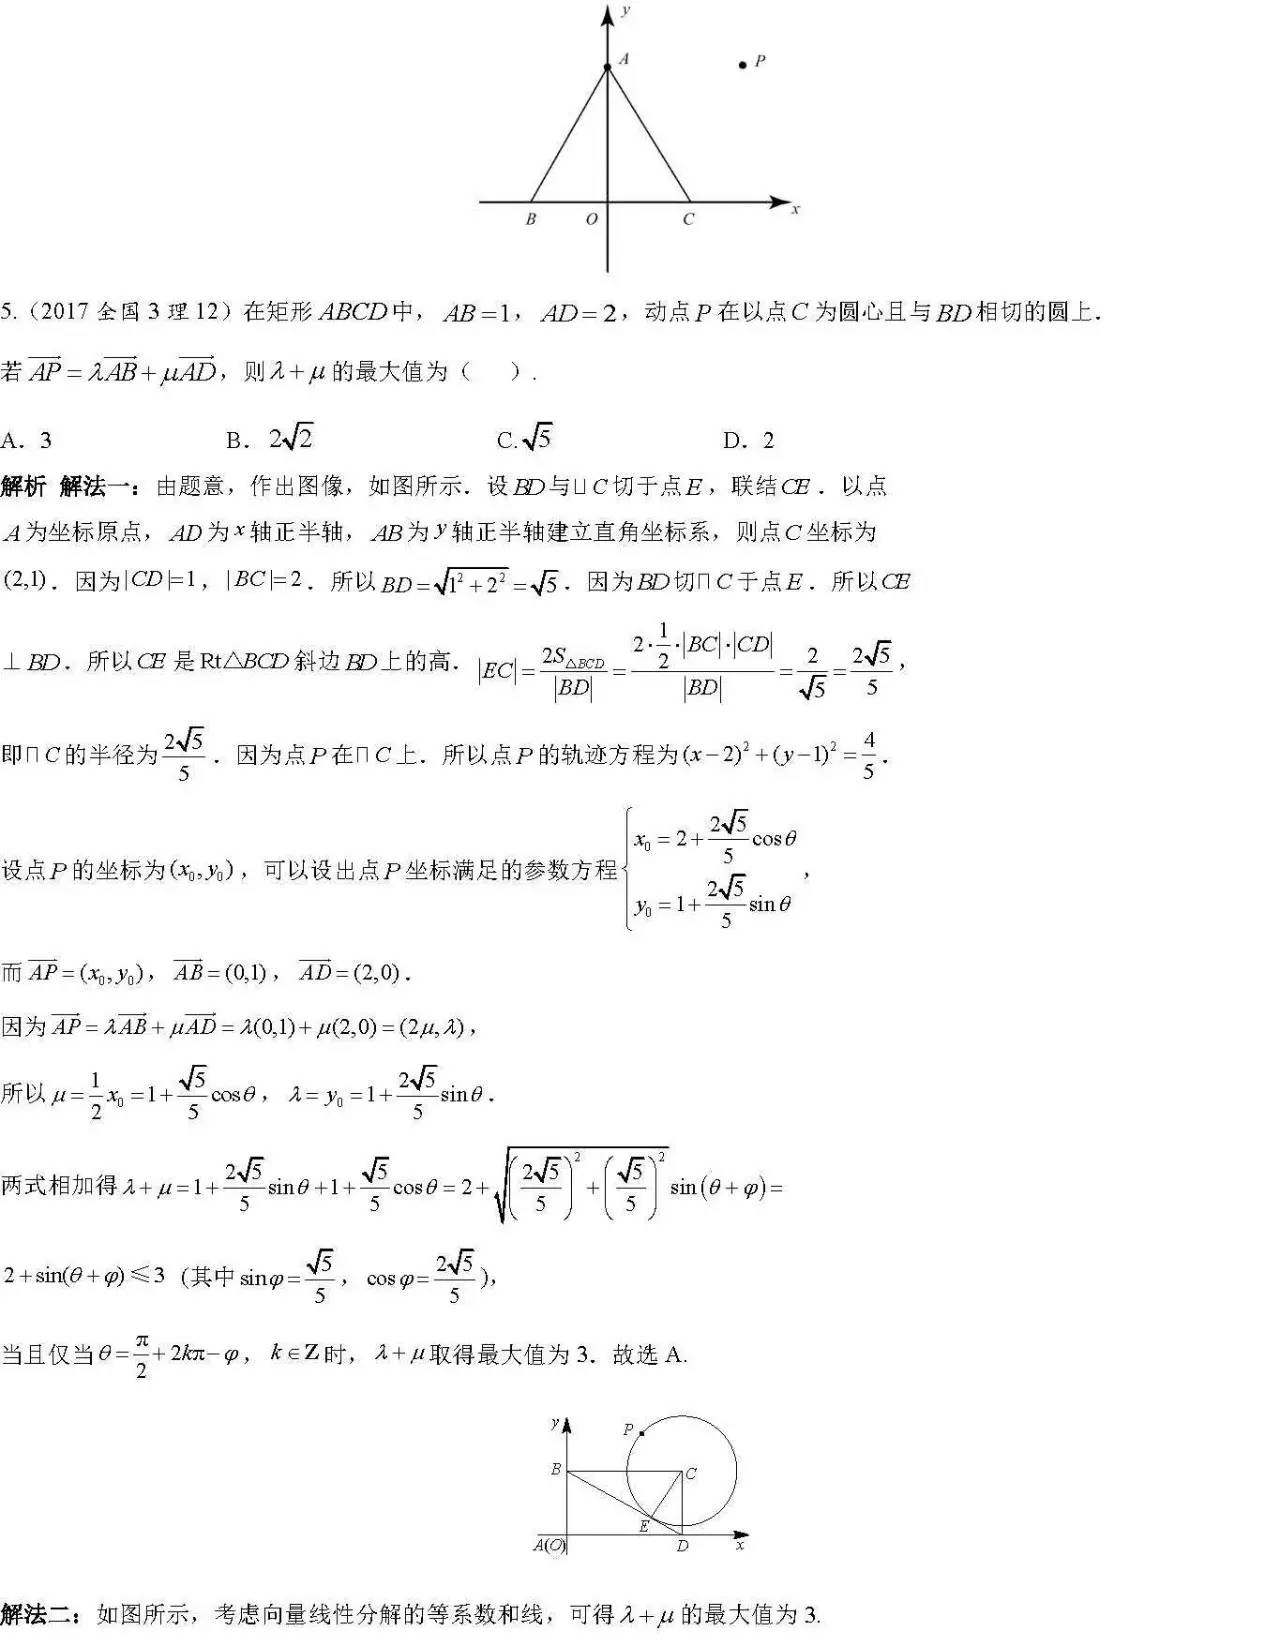 y
A
P
B
O
C
x
5.（2017 全国 3 理 12）在矩形 ABCD 中，AB=1，AD=2，动点 P 在以点 C 为圆心且与 BD 相切的圆上.
若 $\overrightarrow{AP}=\lambda\overrightarrow{AB}+\mu\overrightarrow{AD}$，则 λ+μ 的最大值为（　　）.
A. 3　B. 2√2　C. √5　D. 2
解析 解法一：由题意，作出图像，如图所示. 设 BD 与⊔ C 切于点 E，联结 CE. 以点
A 为坐标原点，AD 为 x 轴正半轴，AB 为 y 轴正半轴建立直角坐标系，则点 C 坐标为
(2,1). 因为|CD|=1，|BC|=2. 所以 $BD=\sqrt{1^2+2^2}=\sqrt{5}$. 因为 BD 切⊓ C 于点 E. 所以 CE
⊥ BD. 所以 CE 是 Rt△BCD 斜边 BD 上的高. $|EC|=\frac{2S_{\triangle BCD}}{|BD|}=\frac{2\cdot\frac{1}{2}\cdot|BC|\cdot|CD|}{|BD|}=\frac{2}{\sqrt{5}}=\frac{2\sqrt{5}}{5}$，
即⊓ C 的半径为 $\frac{2\sqrt{5}}{5}$. 因为点 P 在⊓ C 上. 所以点 P 的轨迹方程为 $(x-2)^2+(y-1)^2=\frac{4}{5}$.
设点 P 的坐标为 $(x_0,y_0)$，可以设出点 P 坐标满足的参数方程 $\begin{cases}x_0=2+\frac{2\sqrt{5}}{5}\cos\theta\\y_0=1+\frac{2\sqrt{5}}{5}\sin\theta\end{cases}$，
而 $\overrightarrow{AP}=(x_0,y_0)$，$\overrightarrow{AB}=(0,1)$，$\overrightarrow{AD}=(2,0)$.
因为 $\overrightarrow{AP}=\lambda\overrightarrow{AB}+\mu\overrightarrow{AD}=\lambda(0,1)+\mu(2,0)=(2\mu,\lambda)$，
所以 $\mu=\frac{1}{2}x_0=1+\frac{\sqrt{5}}{5}\cos\theta$，$\lambda=y_0=1+\frac{2\sqrt{5}}{5}\sin\theta$.
两式相加得 $\lambda+\mu=1+\frac{2\sqrt{5}}{5}\sin\theta+1+\frac{\sqrt{5}}{5}\cos\theta=2+\sqrt{\left(\frac{2\sqrt{5}}{5}\right)^2+\left(\frac{\sqrt{5}}{5}\right)^2}\sin(\theta+\varphi)=$
$2+\sin(\theta+\varphi)\leqslant 3$ (其中 $\sin\varphi=\frac{\sqrt{5}}{5}$，$\cos\varphi=\frac{2\sqrt{5}}{5}$)，
当且仅当 $\theta=\frac{\pi}{2}+2k\pi-\varphi$，$k\in\mathbf{Z}$ 时，λ+μ 取得最大值为 3. 故选 A.
y
P
B
C
E
A(O)
D
x
解法二：如图所示，考虑向量线性分解的等系数和线，可得 λ+μ 的最大值为 3.